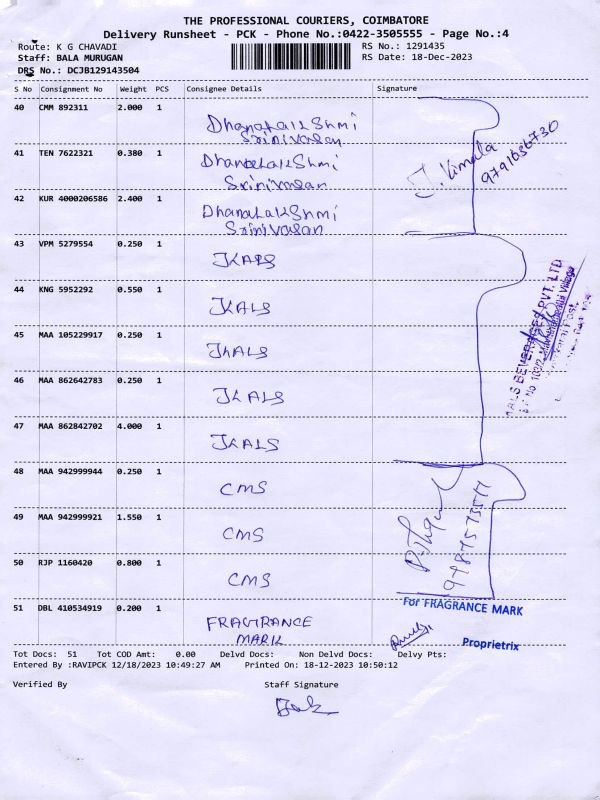 THE PROFESSIONAL COURIERS, COIMBATORE
Delivery Runsheet - PCK - Phone No.:0422-3505555 - Page No.:4
Route: K G CHAVADI RS No.: 1291435
Staff: BALA MURUGAN RS Date: 18-Dec-2023
DRS No.: DCJB129143504
S No Consignment No Weight PCS Consignee Details Signature
40 CMM 892311 2.000 1
Dhanalakshmi
Srinivasan
41 TEN 7622321 0.380 1 Dhanalakshmi
Srinivasan
J. Vimala
42 KUR 4000206586 2.400 1 Dhanalakshmi
Srinivasan
43 VPM 5279554 0.250 1 JKALS
44 KNG 5952292 0.550 1 JKALS
45 MAA 105229917 0.250 1 JKALS
46 MAA 862642783 0.250 1 JKALS
47 MAA 862842702 4.000 1 JKALS
BEVERAGES PVT. LTD
48 MAA 942999944 0.250 1 CMS
49 MAA 942999921 1.550 1 CMS
50 RJP 1160420 0.800 1 CMS
51 DBL 410534919 0.200 1 FRAGRANCE
MARK
For FRAGRANCE MARK
Proprietrix
Tot Docs: 51 Tot COD Amt: 0.00 Delvd Docs: Non Delvd Docs: Delvy Pts:
Entered By :RAVIPCK 12/18/2023 10:49:27 AM Printed On: 18-12-2023 10:50:12
Verified By Staff Signature